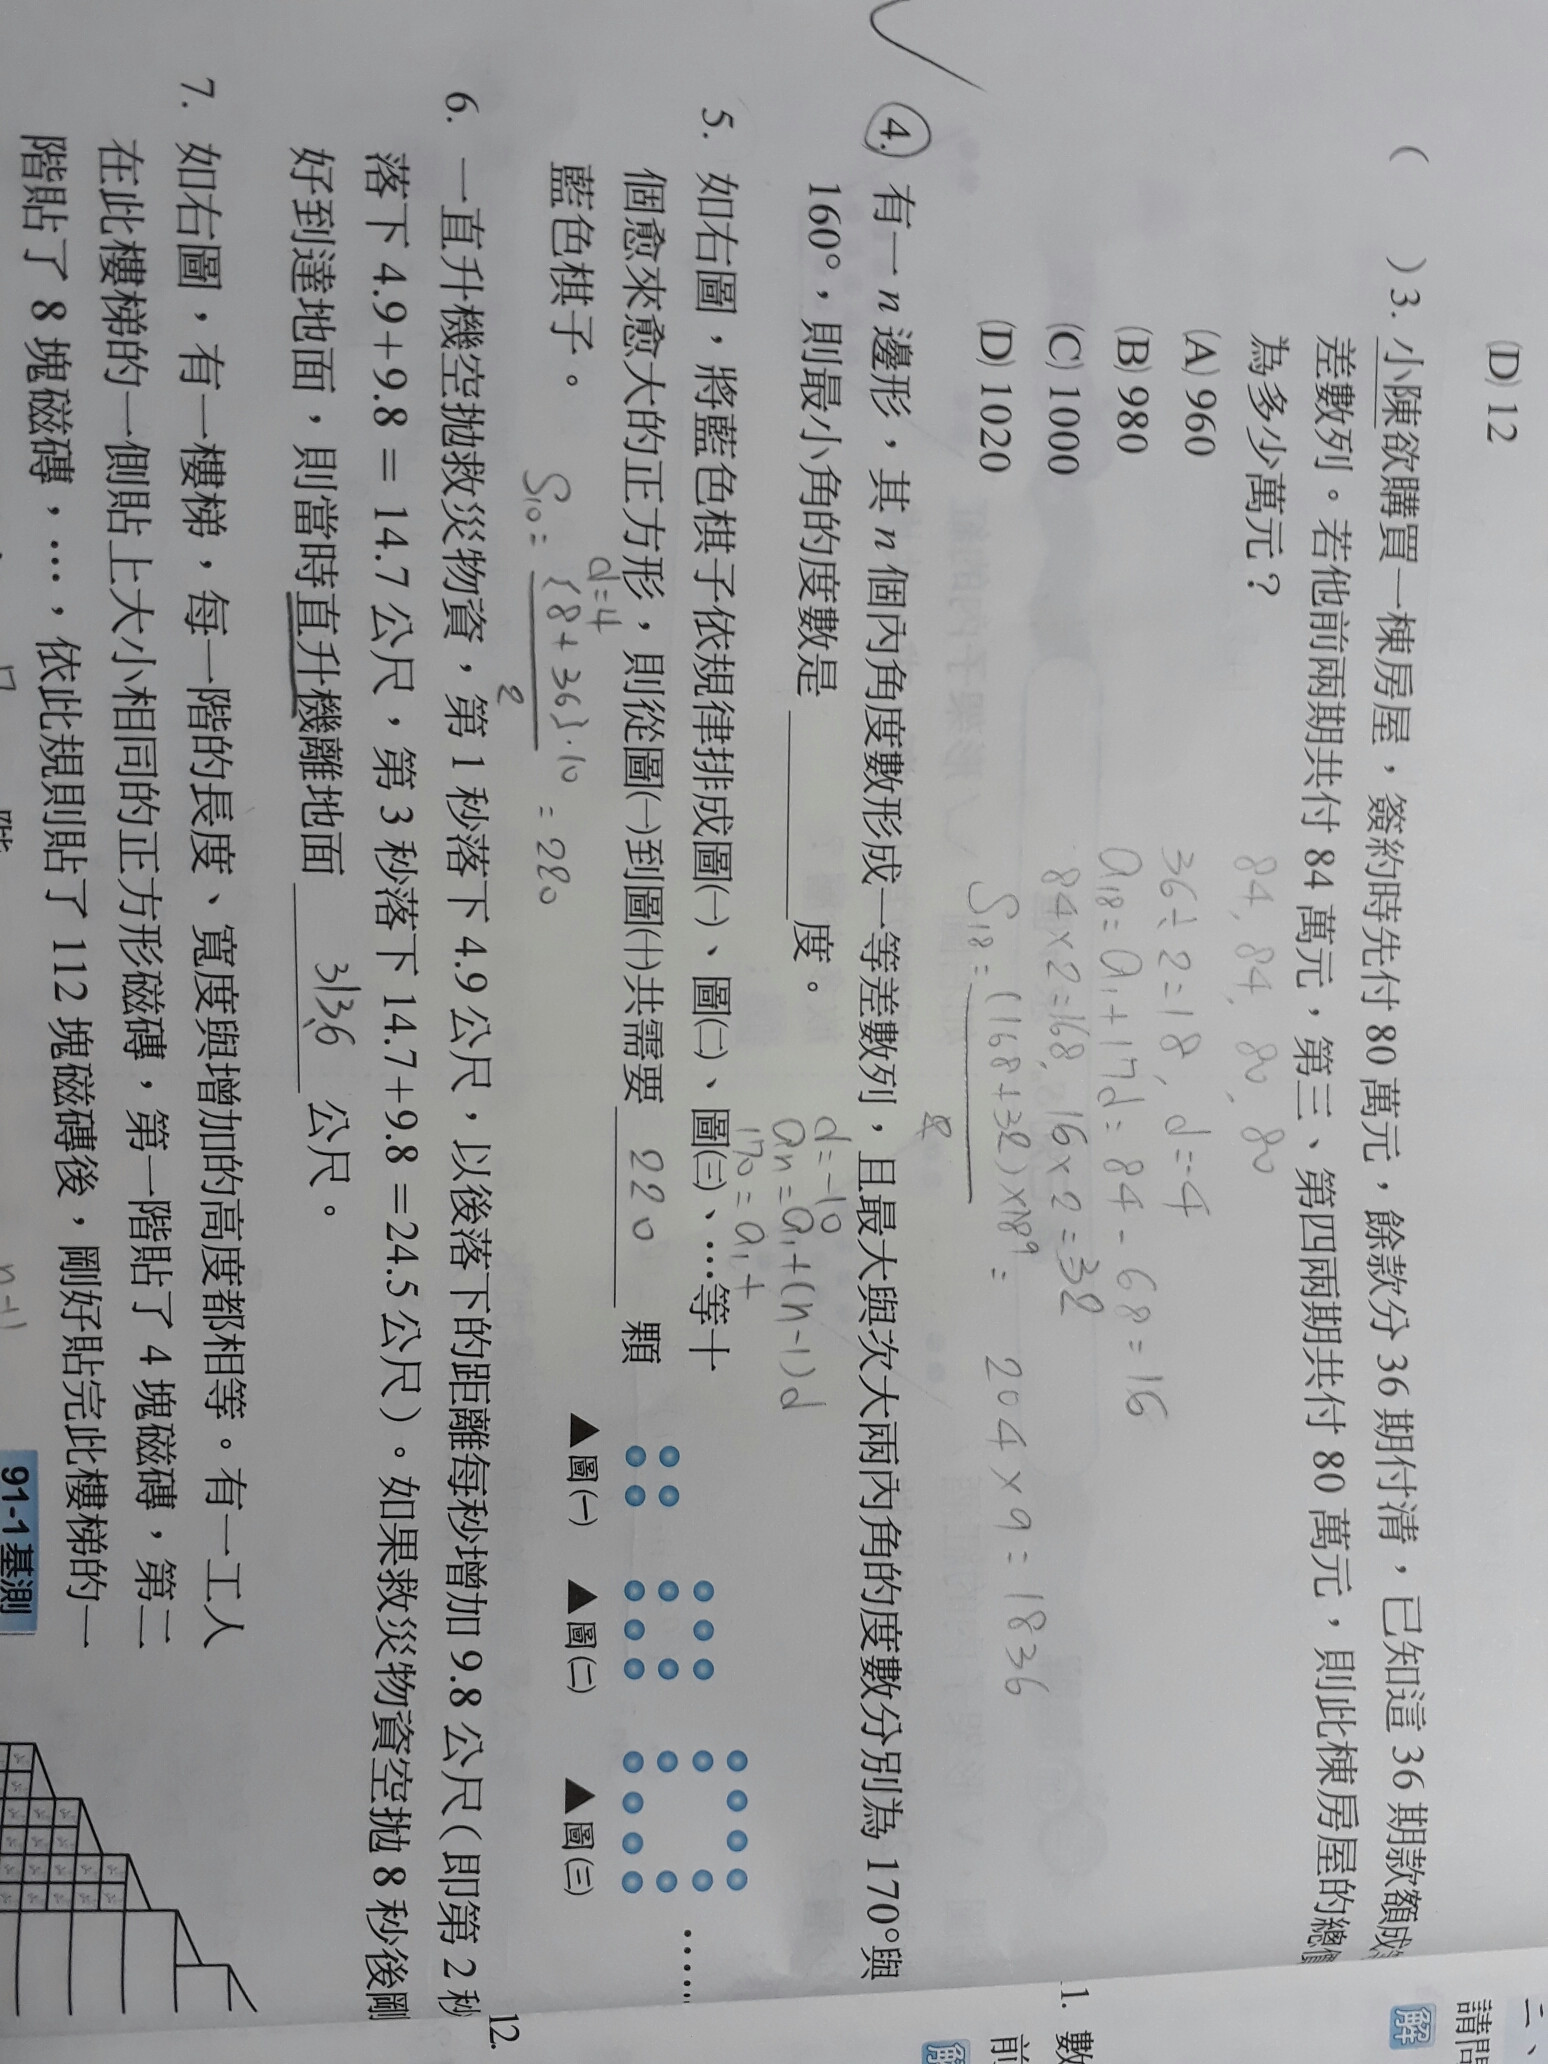 (D) 12
( )3. 小陳欲購買一棟房屋，簽約時先付 80 萬元，餘款分 36 期付清，已知這 36 期款額成
差數列。若他前兩期共付 84 萬元，第三、第四兩期共付 80 萬元，則此棟房屋的總價
為多少萬元？
(A) 960
(B) 980
(C) 1000
(D) 1020
84, 84, 80, 80
36÷2=18, d=-4
a18=a1+17d=84-68=16
84×2=168, 16×2=32
S18=(168+32)×189 = 204×9=1836
2
4. 有一 n 邊形，其 n 個內角度數形成一等差數列，且最大與次大兩內角的度數分別為 170°與
160°，則最小角的度數是 度。
d=-10
an=a1+(n-1)d
170=a1+
5. 如右圖，將藍色棋子依規律排成圖㈠、圖㈡、圖㈢、…等十
個愈來愈大的正方形，則從圖㈠到圖㈩共需要 220 顆
藍色棋子。
▲圖㈠ ▲圖㈡ ▲圖㈢
……
d=4
S10={8+36}·10 = 220
2
6. 一直升機空拋救災物資，第 1 秒落下 4.9 公尺，以後落下的距離每秒增加 9.8 公尺(即第 2 秒
落下 4.9+9.8 = 14.7 公尺，第 3 秒落下 14.7+9.8 =24.5 公尺)。如果救災物資空拋 8 秒後剛
好到達地面，則當時直升機離地面 313.6 公尺。
7. 如右圖，有一樓梯，每一階的長度、寬度與增加的高度都相等。有一工人
在此樓梯的一側貼上大小相同的正方形磁磚，第一階貼了 4 塊磁磚，第二
階貼了 8 塊磁磚，…，依此規則貼了 112 塊磁磚後，剛好貼完此樓梯的一
91-1 基測
二、
請問
解
1. 數
前
解
12.